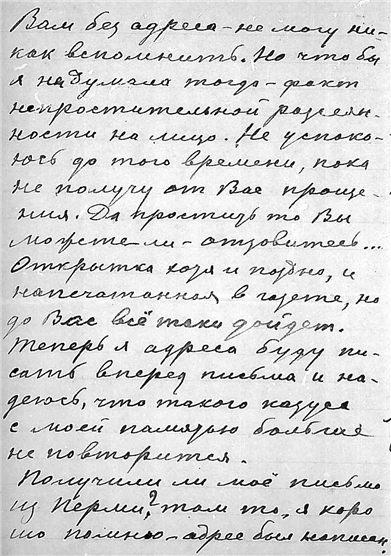 Вам без адреса - не могу ни-
как вспомнить. Но что бы
я ни думала тогда - факт
непростительной рассеян-
ности на лицо. Не успоко-
юсь до того времени, пока
не получу от Вас проще-
ния. Да простить то Вы
можете-ли - отзовитесь...
Открытка хотя и поздно, и
напечатанная в газете, но
до Вас всё таки дойдет.
Теперь я адреса буду пи-
сать вперед письма и на-
деюсь, что такого казуса
с моей памятью больше
не повторится.
Получили ли моё письмо
из Перми? Там то, я хоро
шо помню - адрес был написан